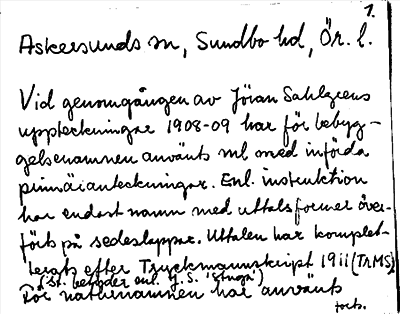 1.
Askersunds sn, Sundbo hd, Ör. l.
Vid genomgången av Jöran Sahlgrens
uppteckningar 1908-09 har för bebyg-
gelsenamnen använts ml med införda
primäranteckningar. Enl. instruktion
har endast namn med uttalsformer över-
förts på sedeslappar. Uttalen har komplet-
terats efter Tryckmanuskript 1911 (TrMS)
(st. betyder enl. J. S. 'Stuga')
För naturnamnen har använts
forts.